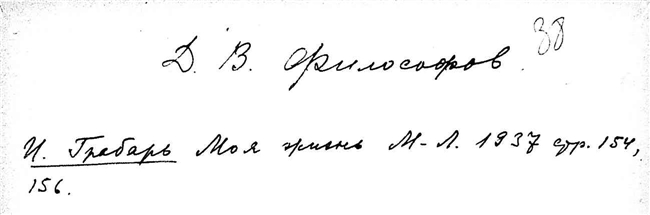 38
Д. В. Философов.
И. Грабарь Моя жизнь М-Л. 1937 стр. 154,
156.